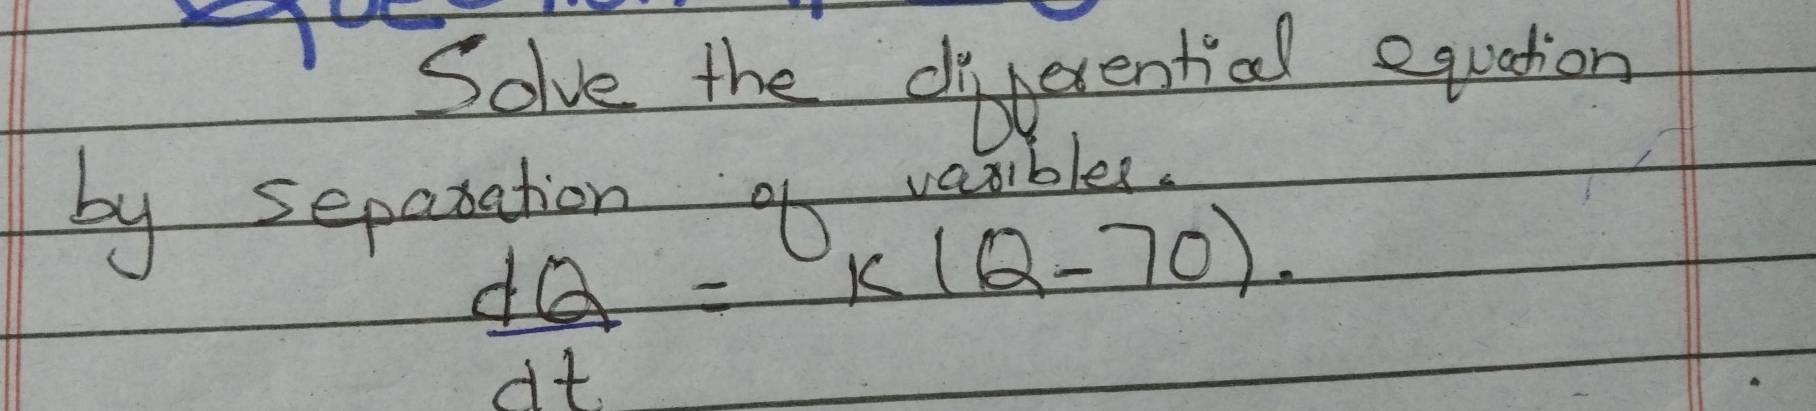 Solve the differential equation
by separation of varibles.
dQ = K(Q-70).
dt